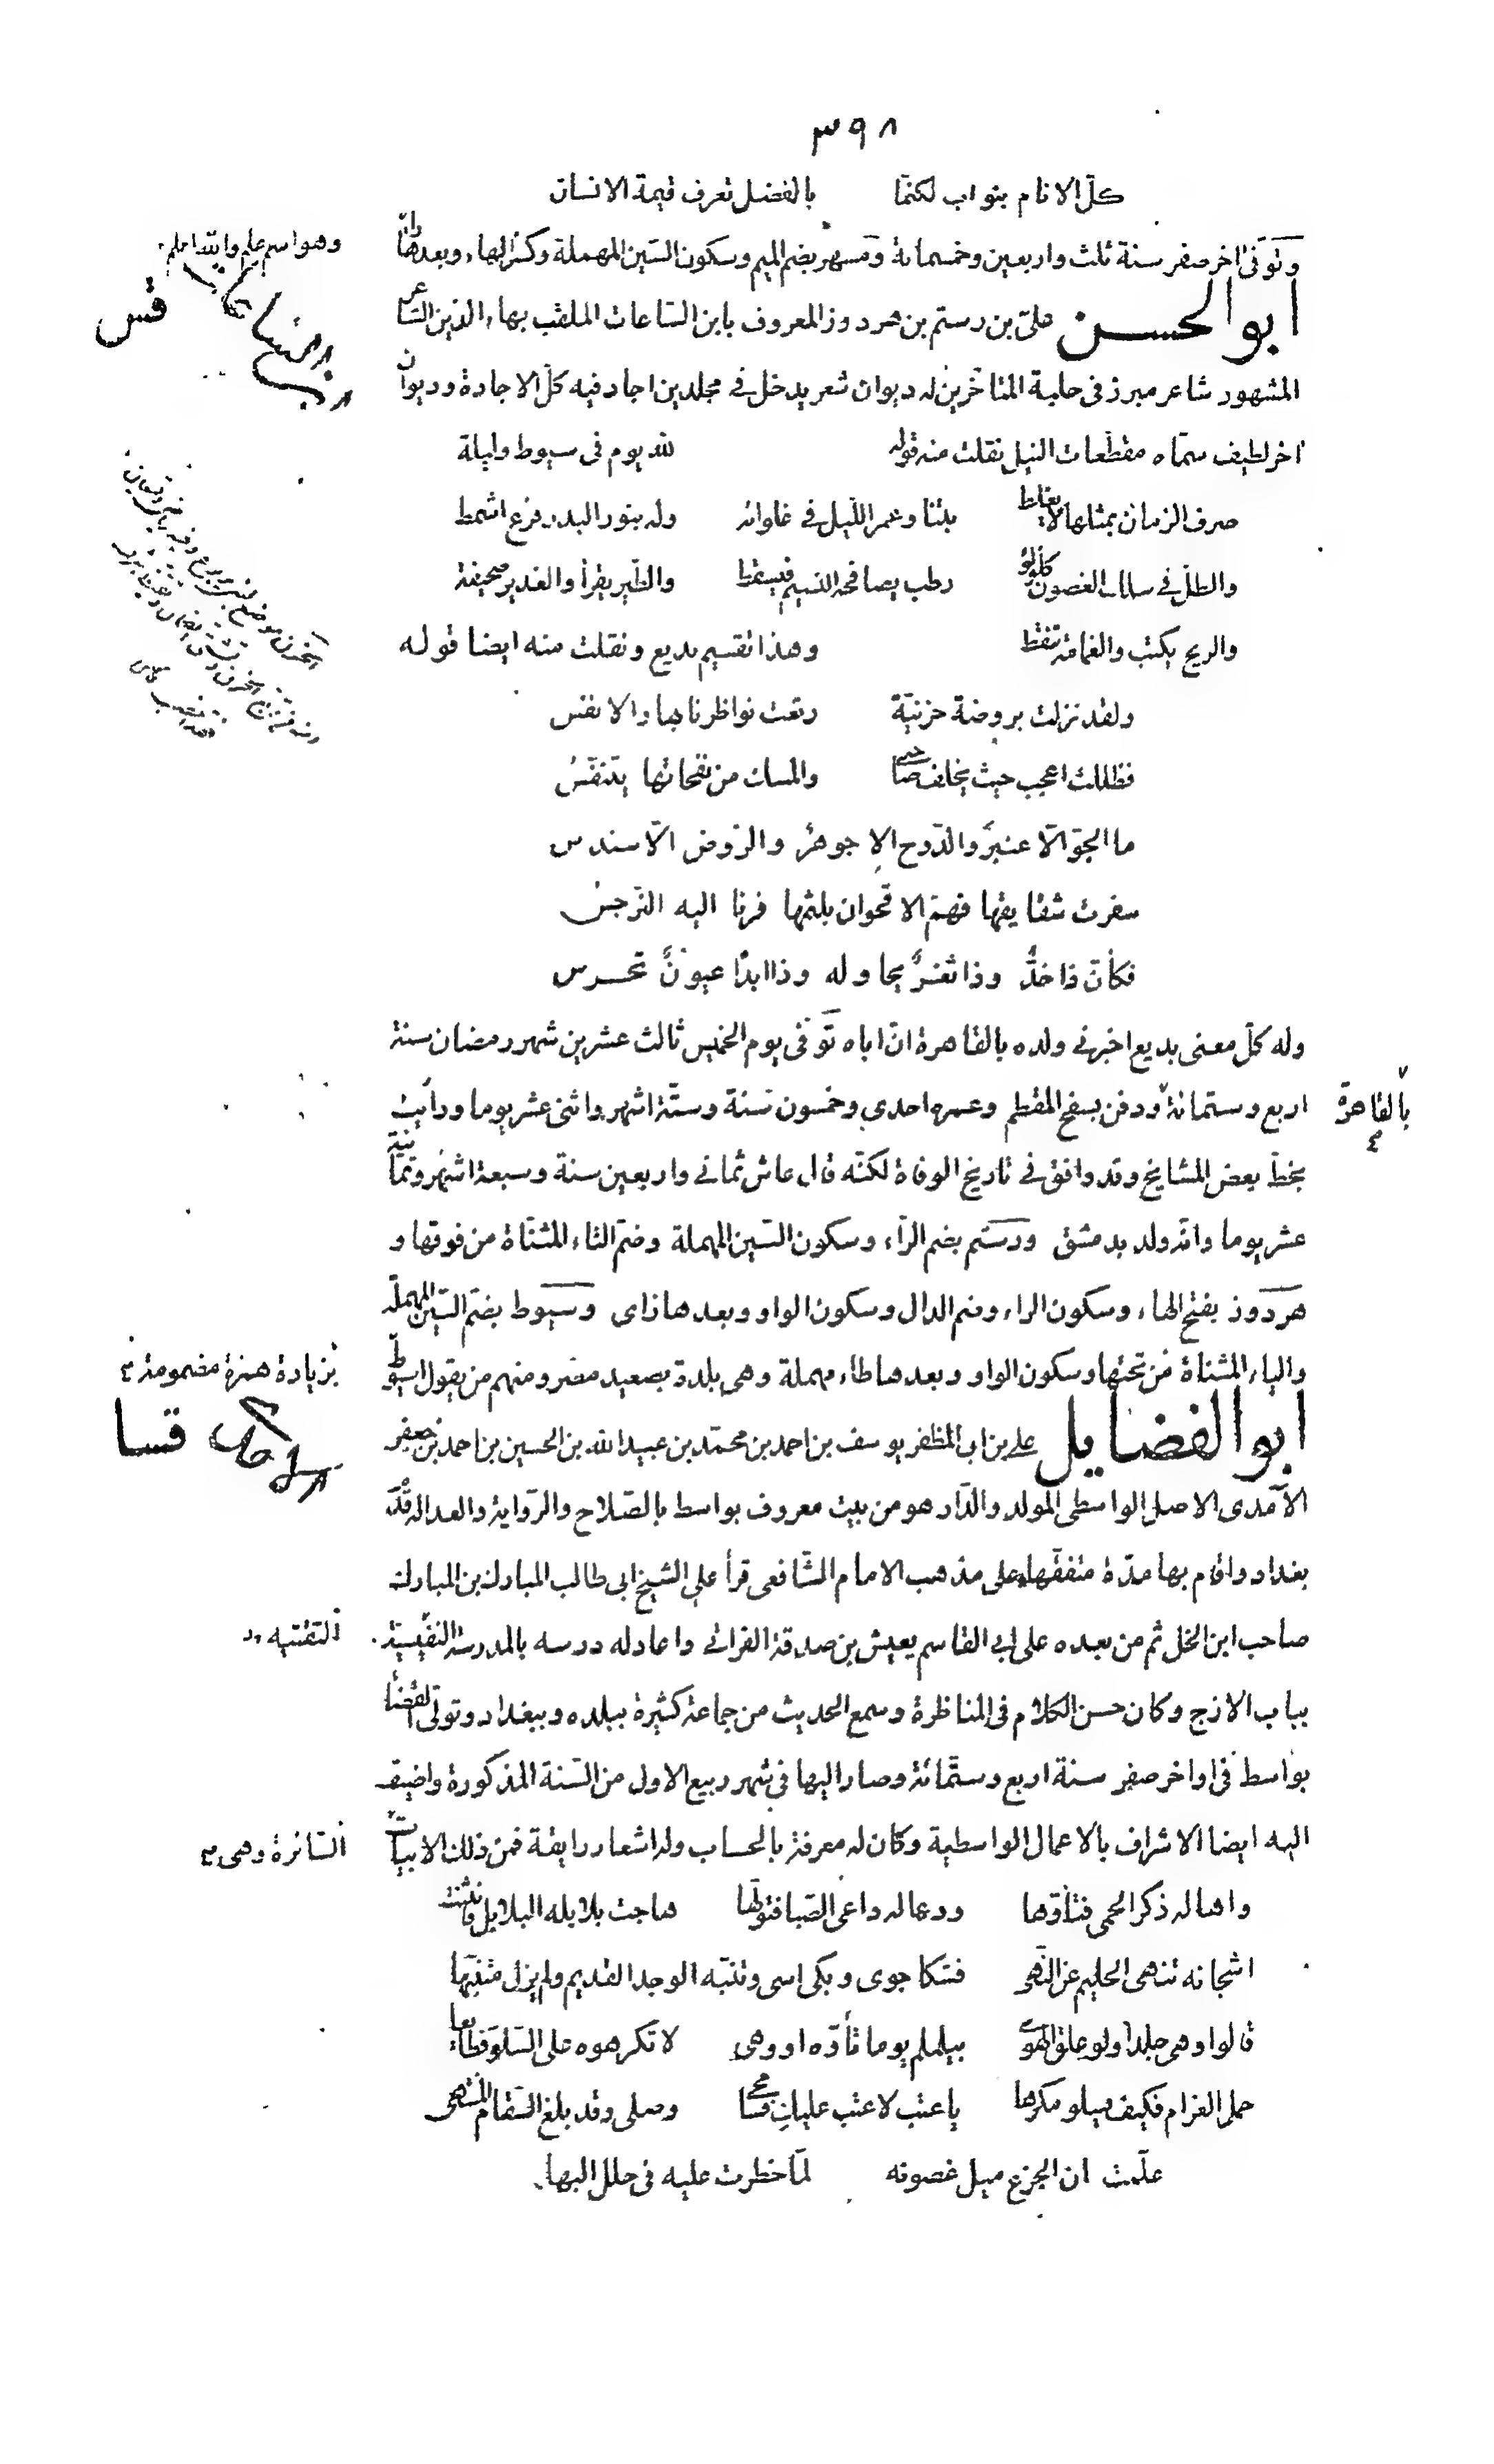 ٣٩٨
كلّ الانام بنو اب لكنما بالفضل تعرف قيمة الانسان
وتوفى اخر صفر سنة ثلث واربعين وخمسمائة ومسهر بضم الميم وسكون السّين المهملة وكسر الهاء وبعدها راء
وهو اسم علم والله اعلم
ابو الحسن على بن رستم بن هردوز المعروف بابن السّاعات الملقب بهاء الدّين الشاعر
ابن الساعاتى قس
المشهور شاعر مبرز فى حلبة المتاخّرين له ديوان شعر يدخل فى مجلدين اجاد فيه كلّ الاجادة وديوان
اخر لطيف سمّاه مقطّعات النيل نقلت منه قوله لله يوم فى سيوط وليلة
صرف الزمان بمثلها لا يغلط بتنا وعمر اللّيل فى غلوائه وله بنور البدر فرع اشمط
والطّلّ فى سلك الغصون كلؤلؤ رطب يصافحه النسيم فيسقط والطّير يقرأ والغدير صحيفة
والريح يكتب والغمامة تنقط وهذا تقسيم بديع ونقلت منه ايضا قوله
ولقد نزلت بروضة حزنيّة رتعت نواظرنا بها والانفس
فظللت اعجب حيث يحلف صاحبى والمسك من نفحاتها يتنفّس
ما الجوّ الّا عنبر والدّوح الا جوهر والرّوض الّا سندس
سفرت شقايقها فهمّ الاقحوان بلثمها فرنا اليه النّرجس
فكأنّ ذا خدٌّ وذا ثغرٌ يحاوله وذا ابدًا عيونٌ تحرس
وله كلّ معنى بديع اخبرنى ولده بالقاهرة انّ اباه توفى يوم الخميس ثالث عشرين شهر رمضان سنة
اربع وستمائة ودفن بسفح المقطم وعمره احدى وخمسون سنة وستّة اشهر واثنى عشر يوما ورأيت
بالقاهرة
بخطّ بعض المشايخ وقد وافق فى تاريخ الوفاة لكنّه قال عاش ثمانى واربعين سنة وسبعة اشهر وثمانية
عشر يوما وانّه ولد بدمشق ورستم بضم الرّاء وسكون السّين المهملة وضمّ التاء المثنّاة من فوقها و
هردوز بفتح الهاء وسكون الراء وضم الدال وسكون الواو وبعدها زاى وسيوط بضمّ السّين المهملة
والياء المثناة من تحتها وسكون الواو وبعدها طاء مهملة وهى بلدة بصعيد مصر ومنهم من يقول اسيوط
بزيادة همزة مضمومة
ابو الفضايل على بن ابى المظفر يوسف بن احمد بن محمّد بن عبيد الله بن الحسين بن احمد بن جعفر
قسا
الآمدى الاصل الواسطى المولد والدّار هو من بيت معروف بواسط بالصّلاح والرّواية والعدالة قدم
بغداد واقام بها مدّة متفقّها على مذهب الامام الشّافعى قرأ على الشيخ ابى طالب المبارك بن المبارك
صاحب ابن الخل ثم من بعده على ابى القاسم يعيش بن صدقة الفراتى واعاد له درسه بالمدرسة النفيسيّة
الثقتيه
بباب الازج وكان حسن الكلام فى المناظرة وسمع الحديث من جماعة كثيرة ببلده وببغداد وتولى القضا
بواسط فى اواخر صفر سنة اربع وستّمائة وصار اليها فى شهر ربيع الاول من السّنة المذكورة واضيف
اليه ايضا الاشراف بالاعمال الواسطية وكان له معرفة بالحساب وله اشعار رايقة فمن ذلك الابيات
السّائرة وهى
واها له ذكر الحمى فتأوّها ودعا له داعى الصّبا فتولّها هاجت بلابله البلابل فانثنت
اشجانه تنهى الحليم عن النّهى فشكا جوى وبكى اسى وتنبّه الوجد القديم ولم يزل متنبّها
قالوا وهى جلدا ولو علق الهوى بيلملم يوما تأوّه او وهى لا تكرهوه على السّلوّ فطايعا
حمل الغرام فكيف يسلو مكرها يا عتب لا عتب عليك فسامحى وصلى وقد بلغ السّقام المنتهى
علّمت ان الجزع ميل غصونه لمّا خطرت عليه فى حلل البها